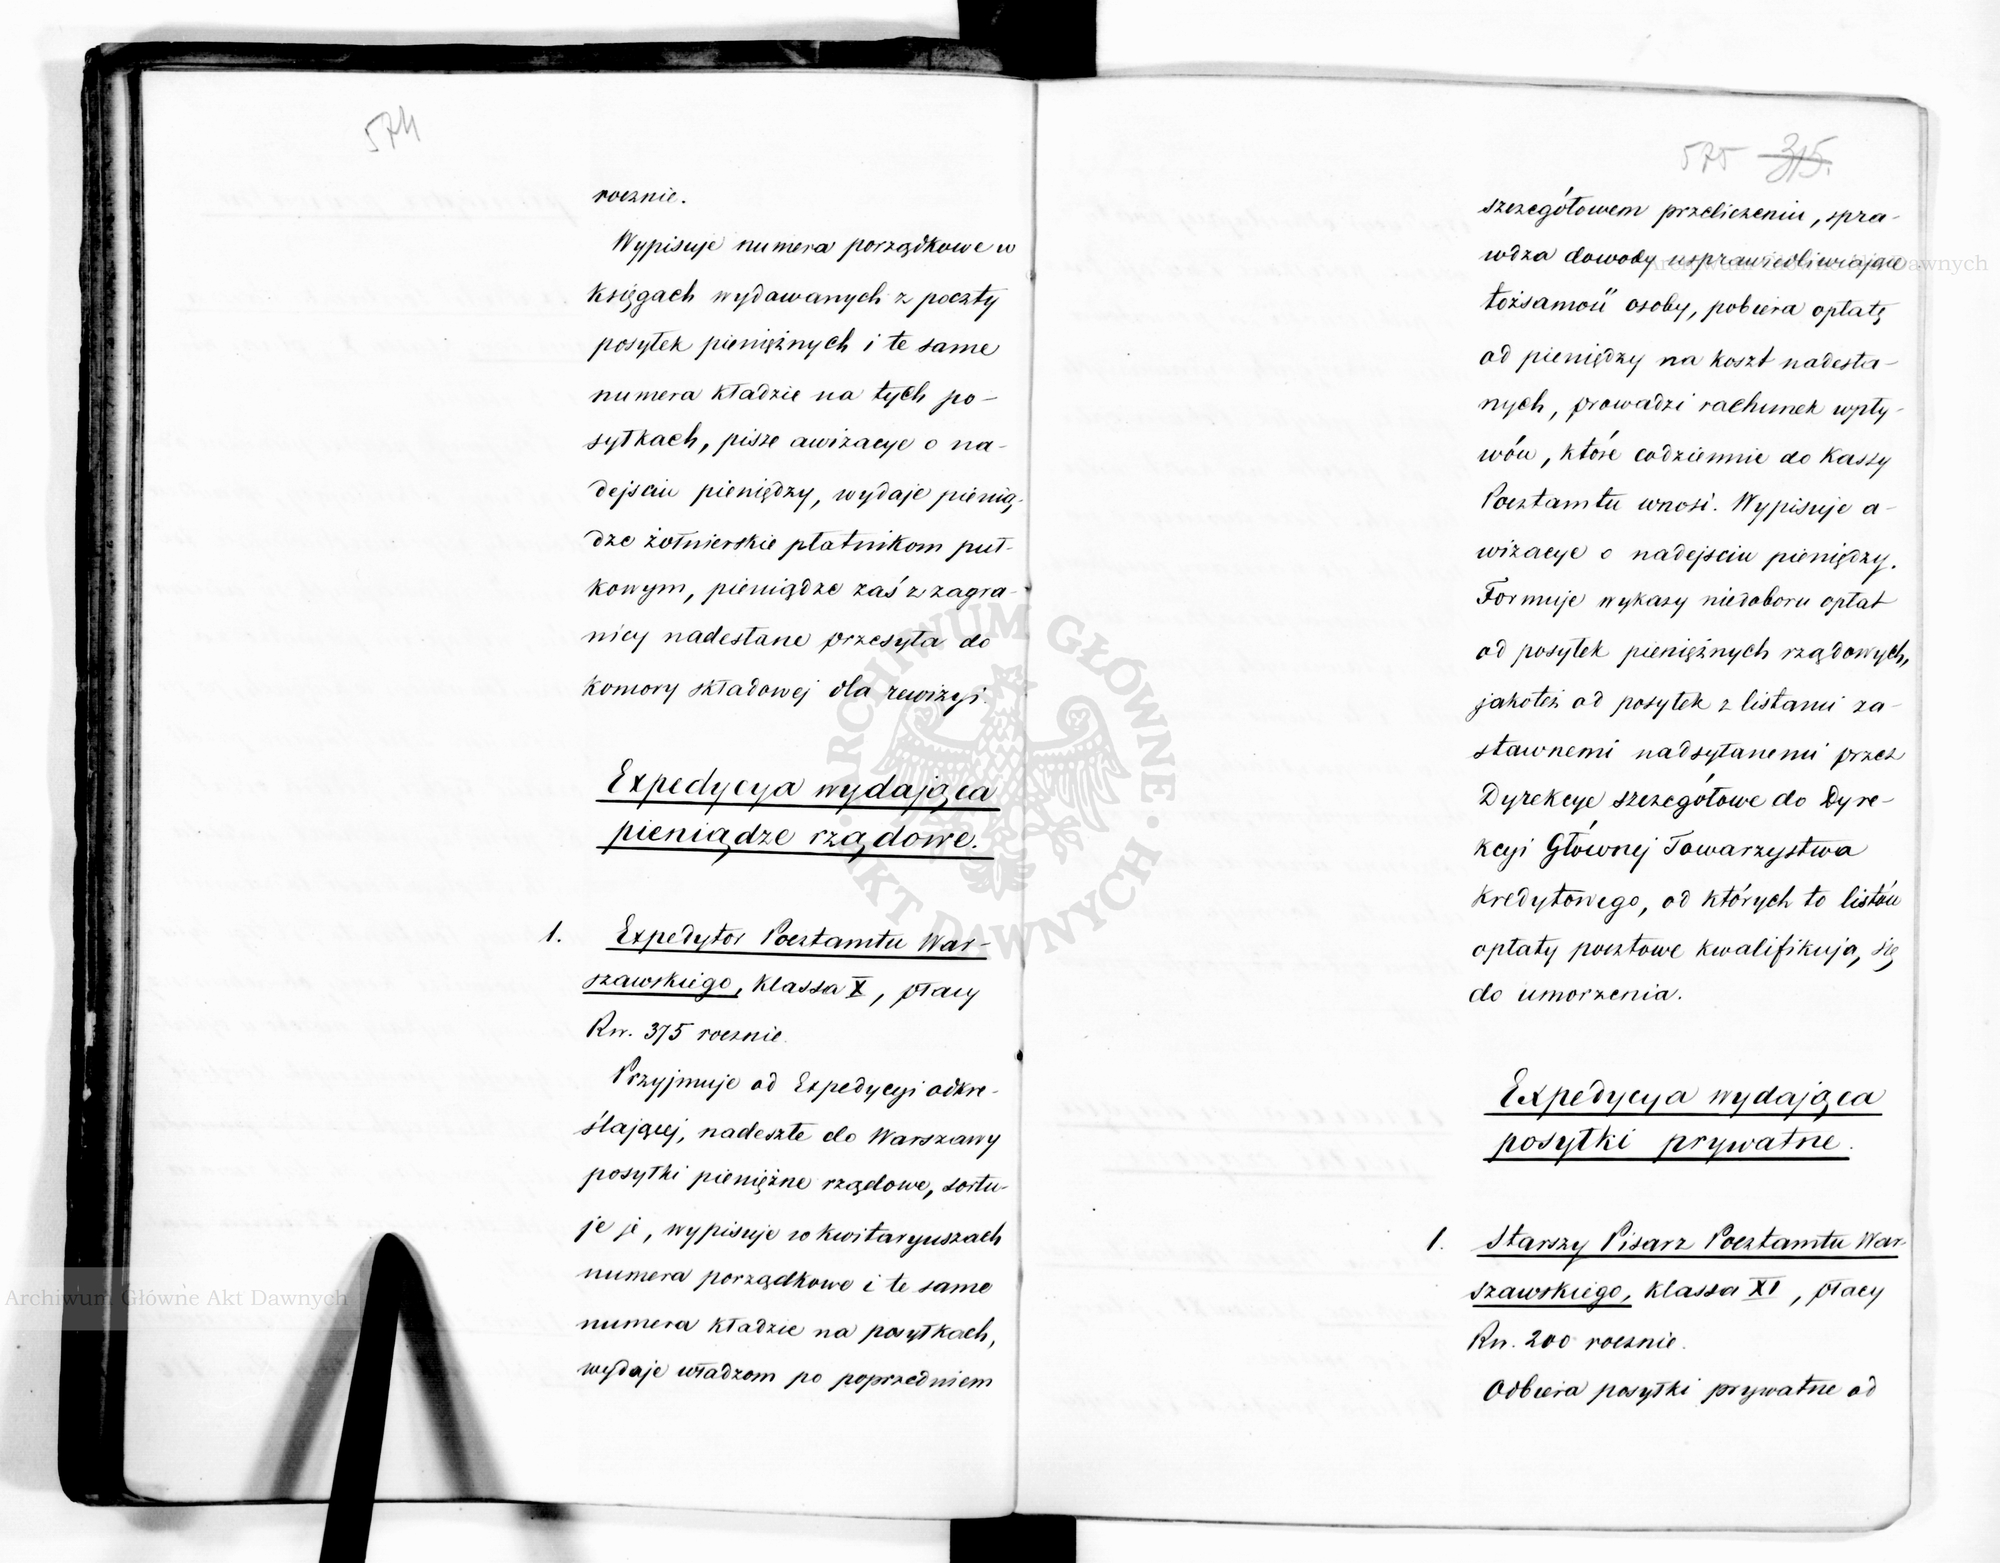 574
rocznie.
Wypisuje numera porządkowe w
księgach wydawanych z poczty
posyłek pieniężnych i te same
numera kładzie na tych po-
syłkach, pisze awizacye o na-
dejściu pieniędzy, wydaje pienią-
dze żołnierskie płatnikom puł-
kowym, pieniądze zaś z zagra-
nicy nadesłane przesyła do
komory składowej dla rewizyi.
Expedycya wydająca
pieniądze rządowe.
1. Expedytor Pocztamtu War-
szawskiego, klassa X, płacy
Rsr. 375 rocznie.
Przyjmuje od Expedycyi odkre-
ślającej, nadeszłe do Warszawy
posyłki pieniężne rządowe, sortu-
je je, wypisuje w kwitaryuszach
numera porządkowe i te same
numera kładzie na posyłkach,
wydaje władzom po poprzedniem
575 315.
szczegółowem przeliczeniu, spra-
wdza dowody usprawiedliwiające
tożsamość osoby, pobiera opłatę
od pieniędzy na koszt nadesła-
nych, prowadzi rachunek wpły-
wów, które codziennie do Kassy
Pocztamtu wnosi. Wypisuje a-
wizacye o nadejściu pieniędzy.
Formuje wykazy niedoboru opłat
od posyłek pieniężnych rządowych,
jakoteż od posyłek z listami za-
stawnemi nadsyłanemi przez
Dyrekcye szczegółowe do Dyre-
kcyi Głównej Towarzystwa
Kredytowego, od których to listów
opłaty pocztowe kwalifikują się
do umorzenia.
Expedycya wydająca
posyłki prywatne.
1. Starszy Pisarz Pocztamtu War-
szawskiego, klassa XI, płacy
Rsr. 200 rocznie.
Odbiera posyłki prywatne od
ARCHIWUM GŁÓWNE AKT DAWNYCH
Archiwum Główne Akt Dawnych
Archiwum Główne Akt Dawnych